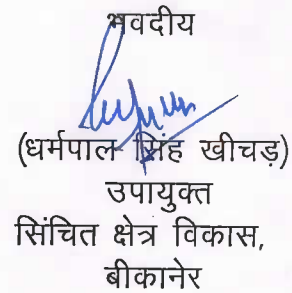 भवदीय
(धर्मपाल सिंह खीचड़)
उपायुक्त
सिंचित क्षेत्र विकास,
बीकानेर